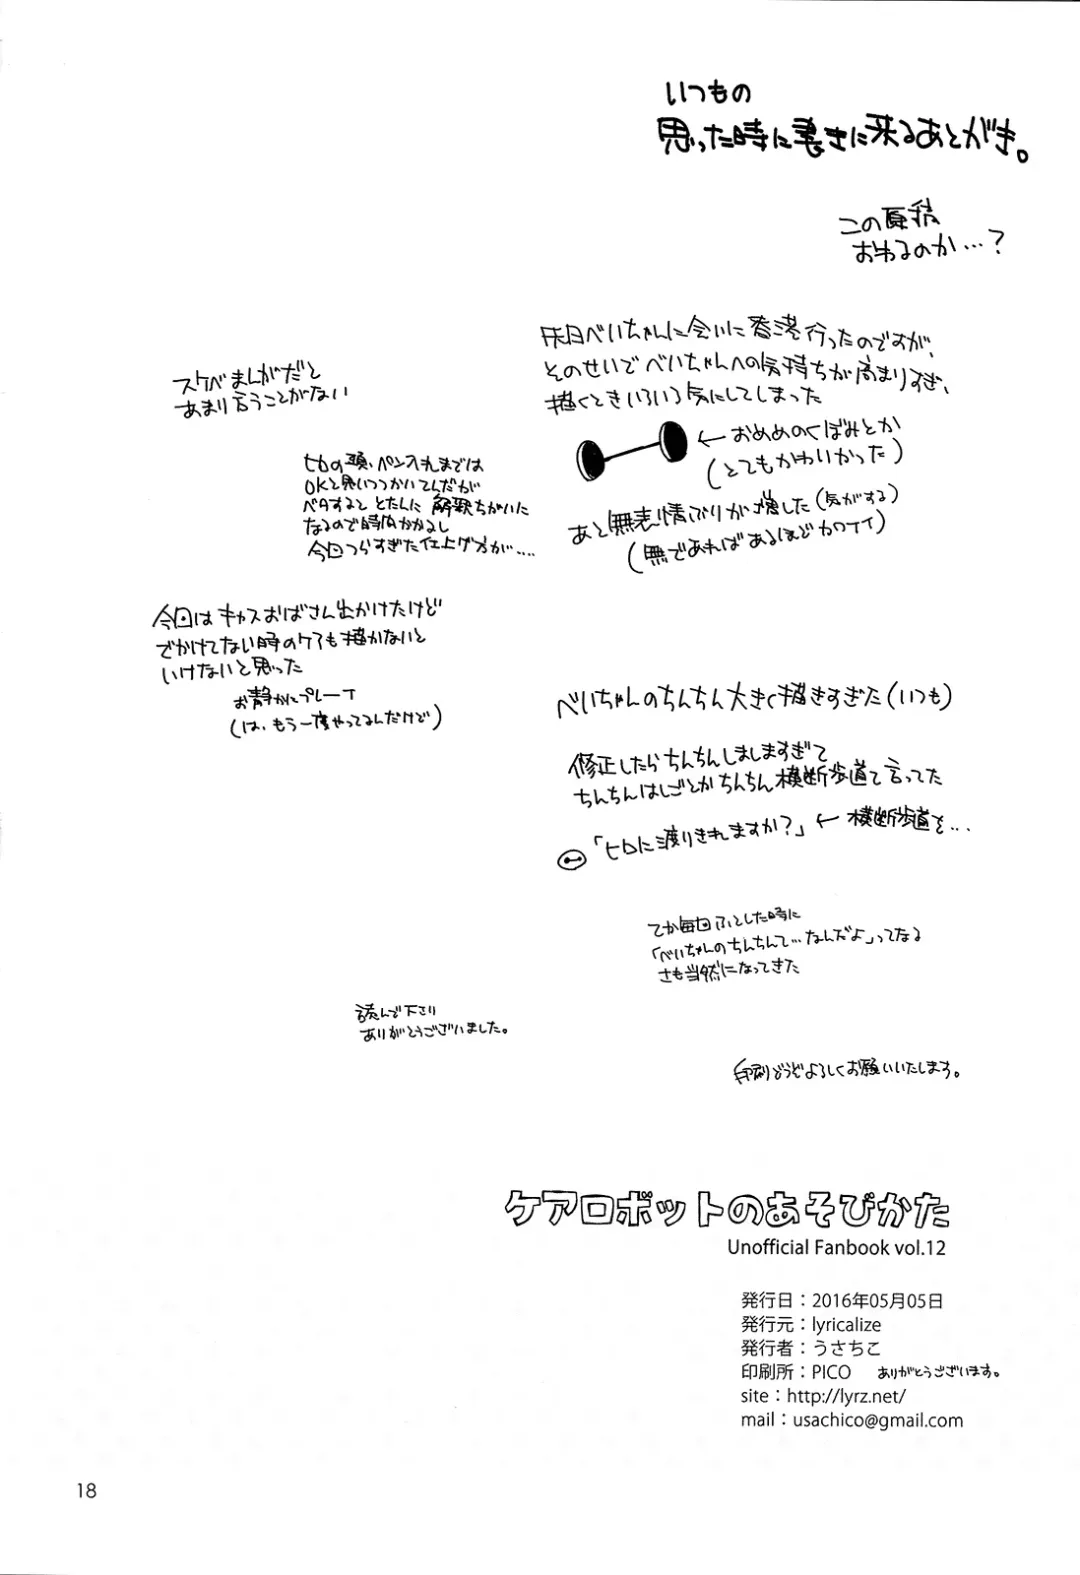 いつもの
思った時に書きに来るあとがき。
この原稿
おわるのか…?
先日べいちゃんに会いに香港行ったのですが、
そのせいでべいちゃんへの気持ちが高まりすぎ、
描くときいろいろ気にしてしまった
←おめめのくぼみとか
(とてもかわいかった)
あと無表情ぶりが増した(気がする)
(無であればあるほどカワイイ)
スケベまんがだと
あまり言うことがない
ヒロの頭、ペン入れまでは
OKと思いつつかいてんだが
ベタするととたんに解釈ちがいに
なるので時間かかるし
今回つらすぎた仕上げ方が….
今回はキャスおばさん出かけたけど
でかけてない時のケアも描かないと
いけないと思った
お静かにプレーイ
(は、もう一度やってるんだけど)
べいちゃんのちんちん大きく描きすぎた(いつも)
修正したらちんちんしましますぎて
ちんちんはしごとかちんちん横断歩道て言ってた
「ヒロに渡りきれますか?」←横断歩道を…
てか毎回ふとした時に
「べいちゃんのちんちんて…なんだよ」ってなる
さも当然になってきた
読んで下さり
ありがとうございました。
印刷どうぞよろしくお願いいたします。
ケアロボットのあそびかた
Unofficial Fanbook vol.12
発行日：2016年05月05日
発行元：lyricalize
発行者：うさちこ
印刷所：PICO ありがとうございます。
site：http://lyrz.net/
mail：usachico@gmail.com
18